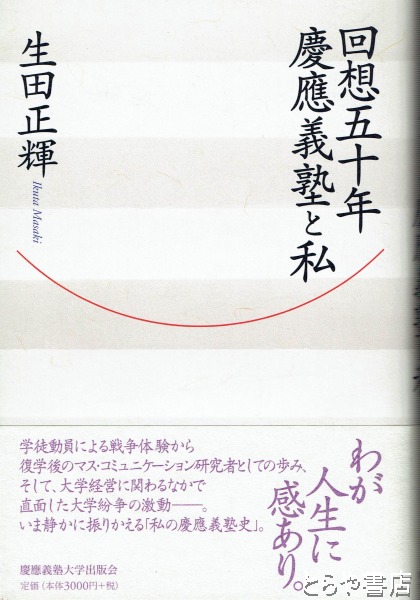 回想五十年
慶應義塾と私
生田正輝
Ikuta Masaki
わが
人生に
感あり。
学徒動員による戦争体験から
復学後のマス・コミュニケーション研究者としての歩み、
そして、大学経営に関わるなかで
直面した大学紛争の激動――。
いま静かに振りかえる「私の慶應義塾史」。
慶應義塾大学出版会
定価（本体3000円+税）
とらや書店